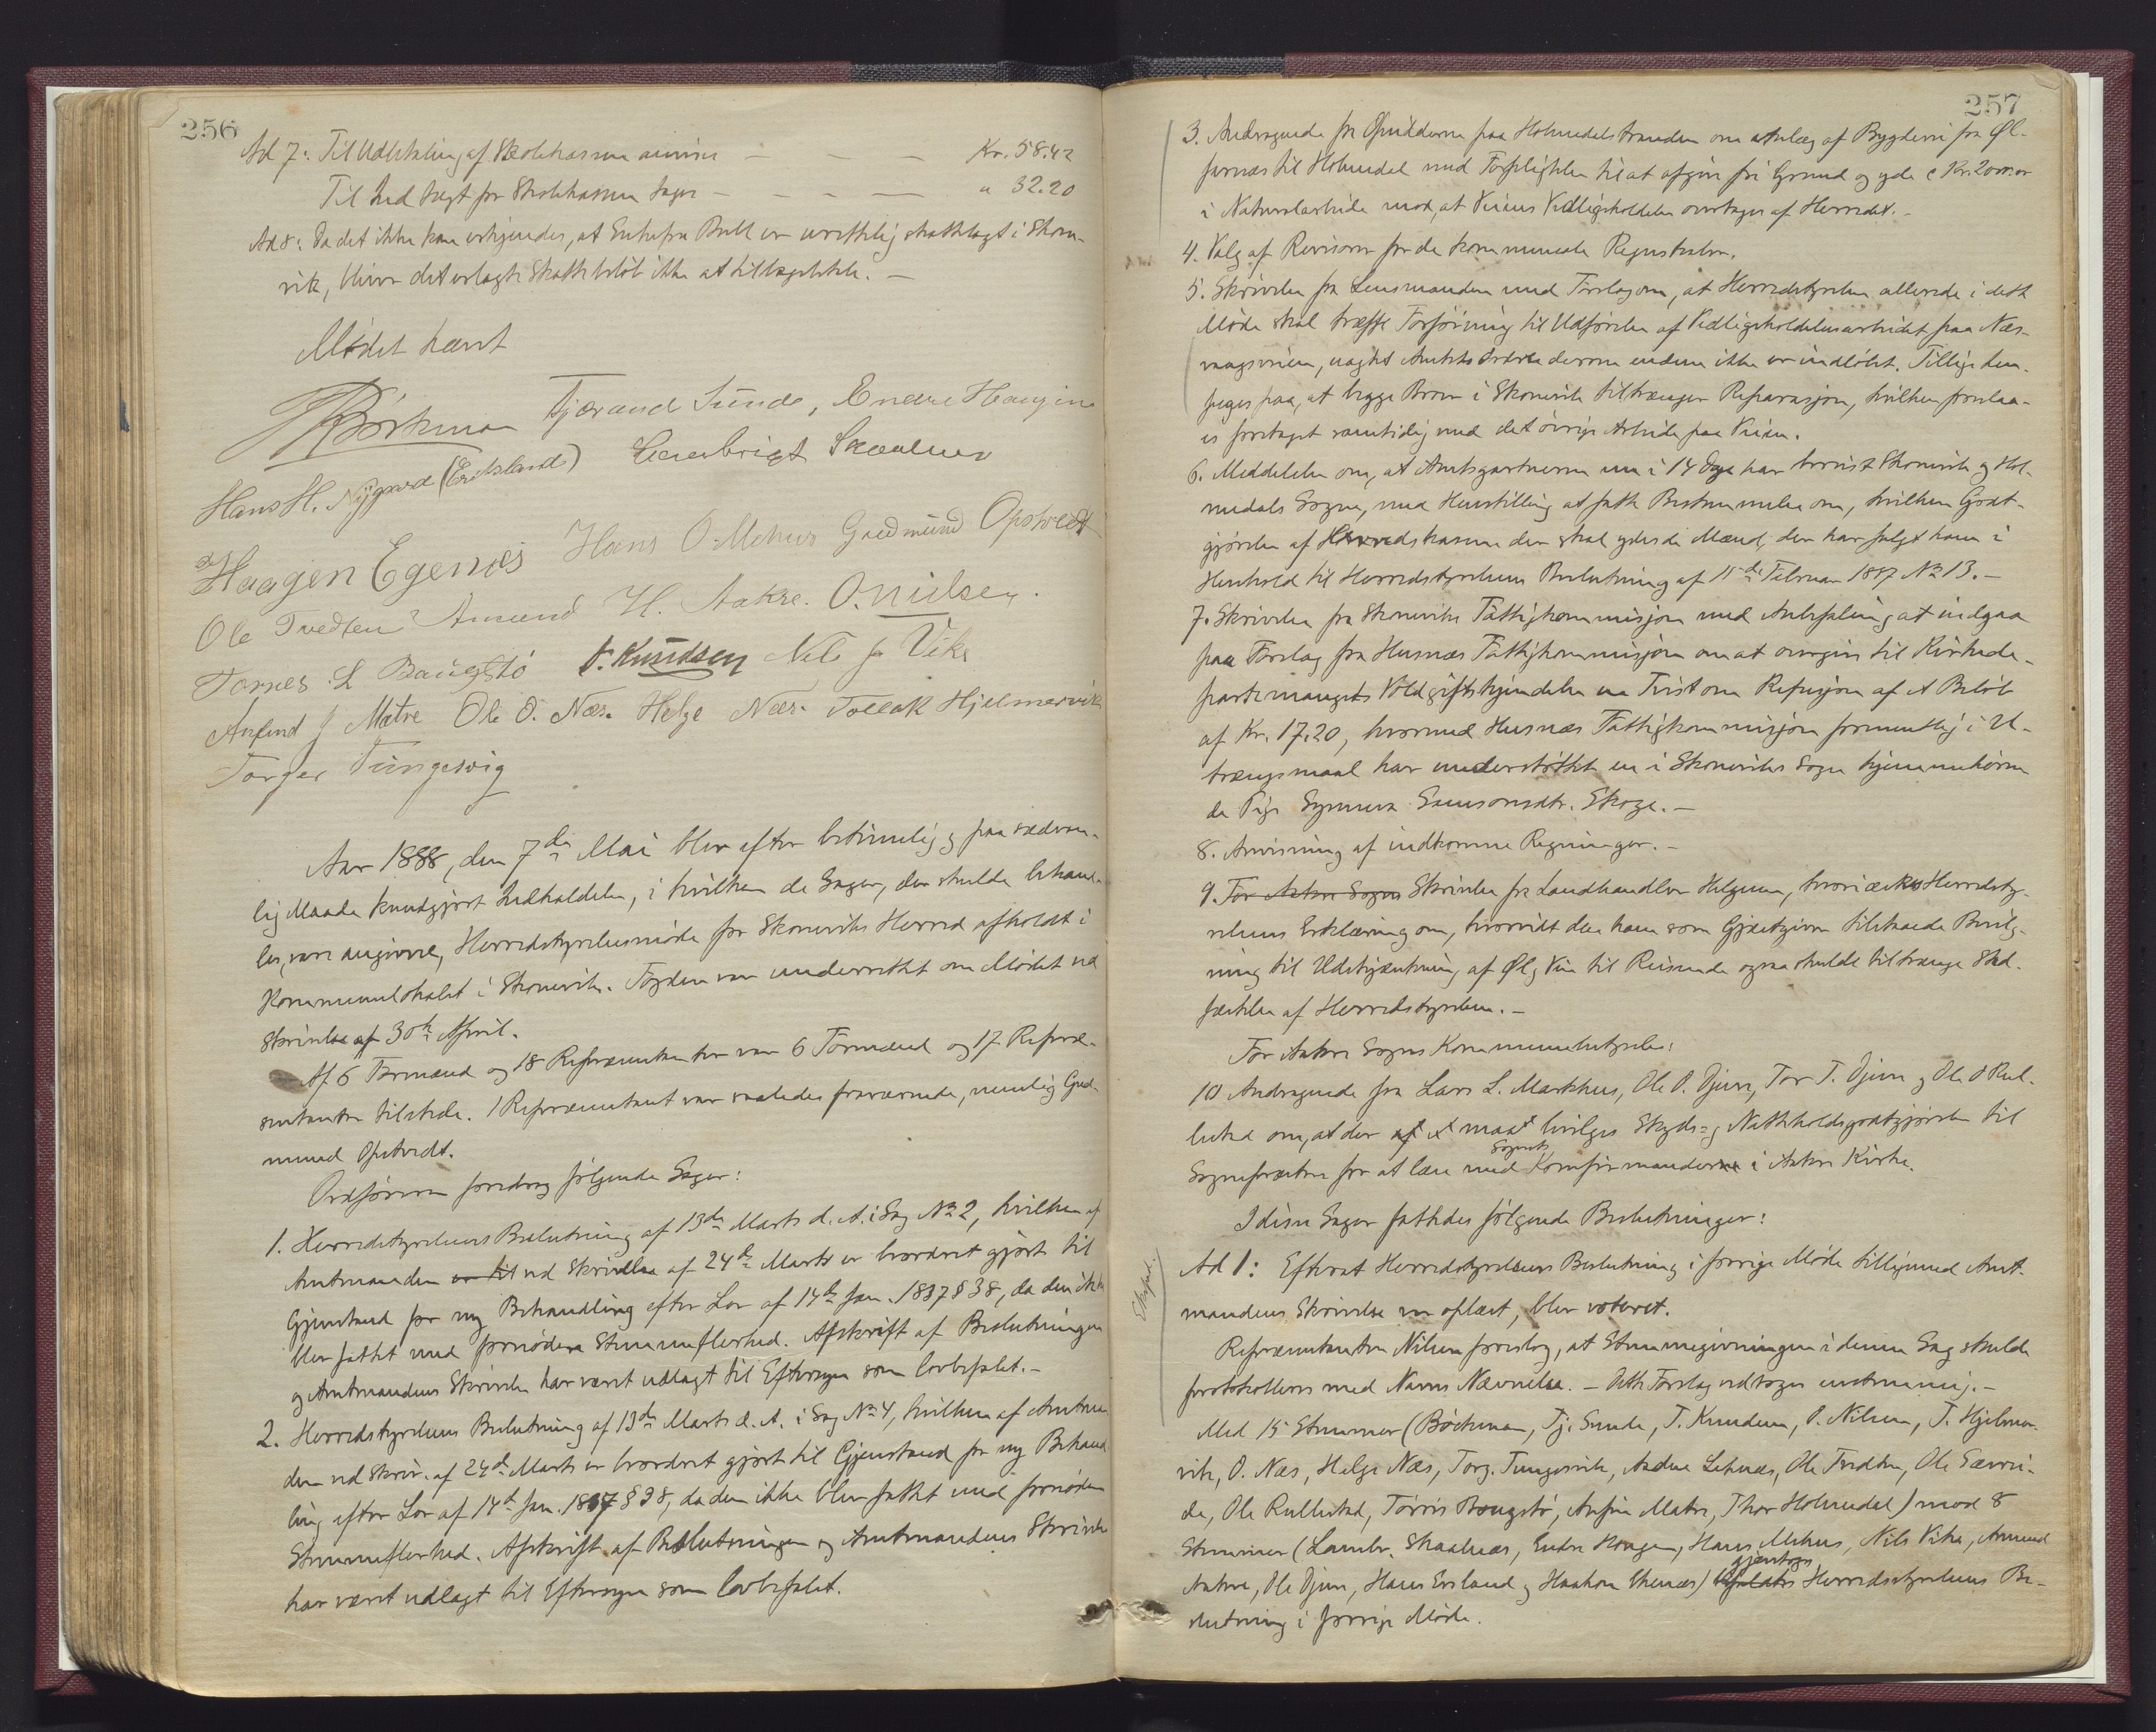 256
Ad 7: Til Udbetaling af Skolekassen anvises — — — Kr. 58.42
Til Indtægt for Skolekassen tages — — — " 32.20
Ad 8: Da det ikke kan erkjendes, at Enkefru Bull er urettelig skattelagt i Skone-
vik, bliver det erlagte Skattebeløb ikke at tilbagebetale. —
Mødet hævet
Böckman Tjærand Sunde, Endre Haugen
Hans H. Nygaard (Eriksland) Lambrigt Skaalnes
Haagen Egenæs Hans O. Mehus Gudmund Opstvedt
Ole Tvedten Amund H. Aakre. O. Nielsen.
Torres L Baugstø T. Knudsen Nils J Vike
Anfind J Matre Ole O. Næs. Helge Næs. Tollak Hjelmervik
Torger Tungesvig
Aar 1888, den 7de Mai blev efter betimelig og paa sædvan-
lig Maade kundgjort Indkaldelse, i hvilken de Sager, der skulde behand-
les, vare angivne, Herredstyrelsesmøde for Skoneviks Herred afholdt i
Kommunelokalet i Skonevik. Fogden var underrettet om Mødet ved
Skrivelse af 30te April.
Af 6 Formænd og 18 Repræsentanter var 6 Formænd og 17 Repræ-
sentanter tilstede. 1 Repræsentant var saaledes fraværende, nemlig Gud-
mund Opstvedt.
Ordføreren foredrog følgende Sager:
1. Herredstyrelsens Beslutning af 13de Marts d. A. i Sag No 2, hvilken af
Amtmanden er til ved Skrivelse af 24de Marts er bevordret gjort til
Gjenstand for ny Behandling efter Lov af 14de Jan. 1837 § 38, da den ikke
blev fattet med fornøden Stemmeflerhed. Afskrift af Beslutningen
og Amtmandens Skrivelse har været udlagt til Eftersyn som lovbefalet. —
2. Herredstyrelsens Beslutning af 13de Marts d. A. i Sag No 4, hvilken af Amtman-
den ved Skriv. af 24de Marts er bevordret gjort til Gjenstand for ny Behand-
ling efter Lov af 14de Jan. 1837 § 38, da den ikke blev fattet med fornøden
Stemmeflerhed. Afskrift af Beslutningen og Amtmandens Skrivelse
har været udlagt til Eftersyn som lovbefalet.
257
3. Andragende fra Opsidderne paa Holmedalstranden om Anlæg af Bygdevei fra Øl-
fernæs til Holmedal med Forpligtelse til at afgive fri Grund og yde c Kr. 2000.00
i Naturalarbeide mod, at Veiens Vedligeholdelse overtages af Herredet. —
4. Valg af Revisorer for de kommunale Regnskaber.
5. Skrivelse fra Lensmanden med Forslag om, at Herredstyrelsen allerede i dette
Møde skal træffe Forføining til Udførelse af Vedligeholdelsesarbeidet paa Næs-
vaagsveien, uagtet Amtets Ordre derom endnu ikke er indløbet. Tillige hen-
peges paa, at begge Broer i Skonevik tiltrænger Reparasjon, hvilken foreslaa-
es foretaget samtidig med det øvrige Arbeide paa Veien.
6. Meddelelse om, at Amtsgartneren nu i 14 Dage har bereist Skonevik og Hol-
medals Sogne, med Henstilling at fatte Bestemmelse om, hvilken Godt-
gjørelse af Herredskassen der skal ydes de Mænd, der har fulgt ham i
Henhold til Herredstyrelsens Beslutning af 15de Februar 1887 No 13. —
7. Skrivelse fra Skoneviks Fattigkommisjon med Anbefaling at indgaa
paa Forslag fra Husnæs Fattigkommisjon om at overgive til Kirkede-
partementets Voldgiftskjendelse en Tvist om Refusjon af et Beløb
af Kr. 17.20, hvormed Husnæs Fattigkommisjon formentlig i U-
trængsmaal har understøttet en i Skoneviks Sogn hjemmehøren-
de Pige Synneva Samsonsdtr. Skoge. —
8. Anvisning af indkomne Regninger. —
9. For Aakre Sogn Skrivelse fra Landhandler Helgesen, hvori æskes Herredsty-
relsens Erklæring om, hvorvidt den ham som Gjæstgiver tilstaaede Bevilg-
ning til Udskjænkning af Øl og Vin til Reisende ogsaa skulde tiltrænge Stad-
fæstelse af Herredstyrelsen. —
For Aakre Sogns Kommunebestyrelse:
10 Andragende fra Lars L. Markhus, Ole O. Djuve, Tor T. Djuve og Ole O Rul-
lestad om, at der af et maat bevilges Skyds- og Nattholdsgodtgjørelse til
Sognepræsten for at læse med Sognets Konfirmanderne i Aakre Kirke.
I disse Sager fattedes følgende Beslutninger:
Eksped.
Ad 1: Efterat Herredstyrelsens Beslutning i forrige Møde tilligemed Amt-
mandens Skrivelse var oplæst, blev voteret.
Repræsentanten Nilsen foreslog, at Stemmegivningen i denne Sag skulde
protokolleres med Navns Nævnelse. — Dette Forslag vedtoges enstemmig. —
Med 15 Stemmer (Böckman, Tj. Sunde, T. Knudsen, O. Nilsen, T. Hjelmer-
vik, O. Næs, Helge Næs, Torg. Tungesvik, Andne Leknæs, Ole Tvedten, Ole Sævrei-
de, Ole Rullestad, Tørris Baugstø, Anfin Matre, Thor Holmedal) mod 8
Stemmer (Lambr. Skaalnæs, Endre Haugen, Hans Mehus, Nils Vike, Amund
Aakre, Ole Djuve, Hans Ersland og Haakon Ekenæs) gjentoges Herredstyrelsens Be-
slutning i forrige Møde.